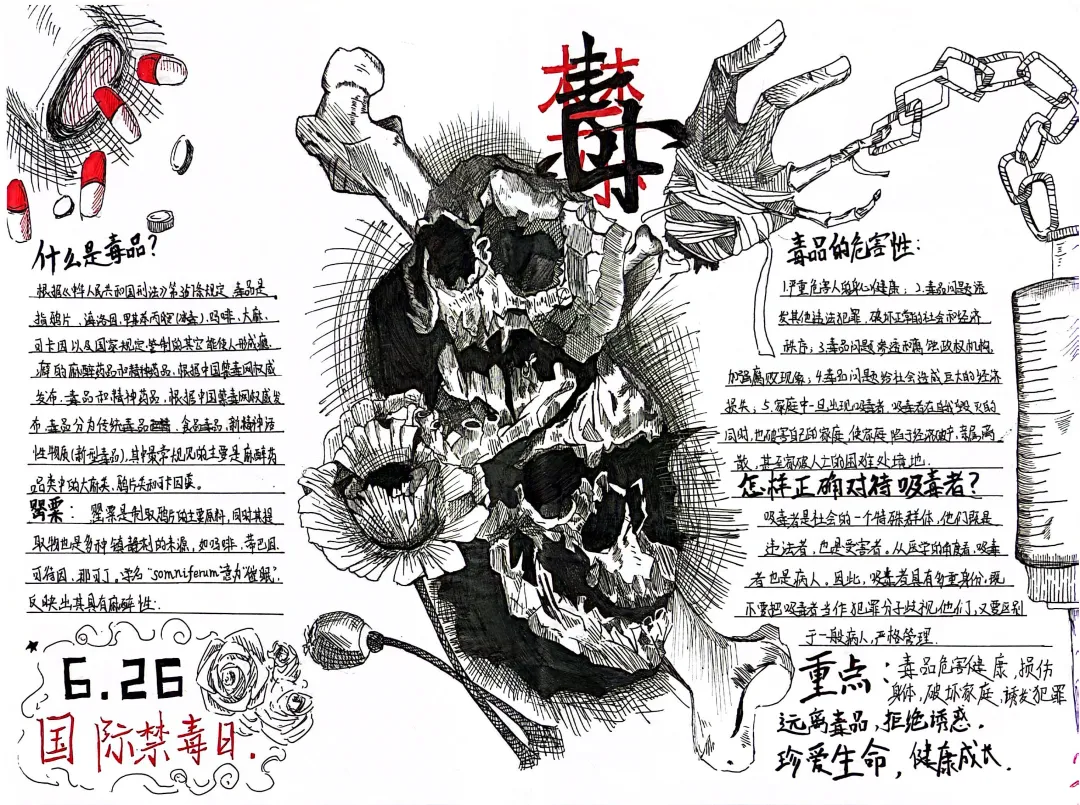 禁毒
什么是毒品？
根据《中华人民共和国刑法》第357条规定，毒品是
指鸦片、海洛因、甲基苯丙胺(冰毒)、吗啡、大麻、
可卡因以及国家规定管制的其它能使人形成瘾
癖的麻醉药品和精神药品。根据中国禁毒网权威
发布，毒品和精神药品。根据中国禁毒网权威发
布，毒品分为传统毒品、食品毒品、新精神活
性物质(新型毒品)，其中最常见的主要是麻醉药
品类中的大麻类、鸦片类和可卡因类。
罂粟：罂粟是制取鸦片的主要原料，同时其提
取物也是多种镇静剂的来源，如吗啡、蒂巴因、
可待因、那可丁。学名“somniferum”意为“催眠”，
反映出其具有麻醉性.
6.26
国际禁毒日.
毒品的危害性：
1.严重危害人的身心健康；2.毒品问题诱
发其他违法犯罪，破坏正常的社会和经济
秩序；3.毒品问题渗透和腐蚀政权机构，
加强腐败现象；4.毒品问题给社会造成巨大的经济
损失；5.家庭中一旦出现吸毒者，吸毒者在自我毁灭的
同时，也破害自己的家庭，使家庭陷于经济破产、亲属离
散、甚至家破人亡的困难处境地.
怎样正确对待吸毒者？
吸毒者是社会的一个特殊群体，他们既是
违法者，也是受害者。从医学的角度看，吸毒
者也是病人，因此，吸毒者具有多重身份，既
不要把吸毒者当作犯罪分子歧视他们，又要区别
于一般病人，严格管理.
重点：毒品危害健康，损伤
身体，破坏家庭，诱发犯罪
远离毒品，拒绝诱惑.
珍爱生命，健康成长.